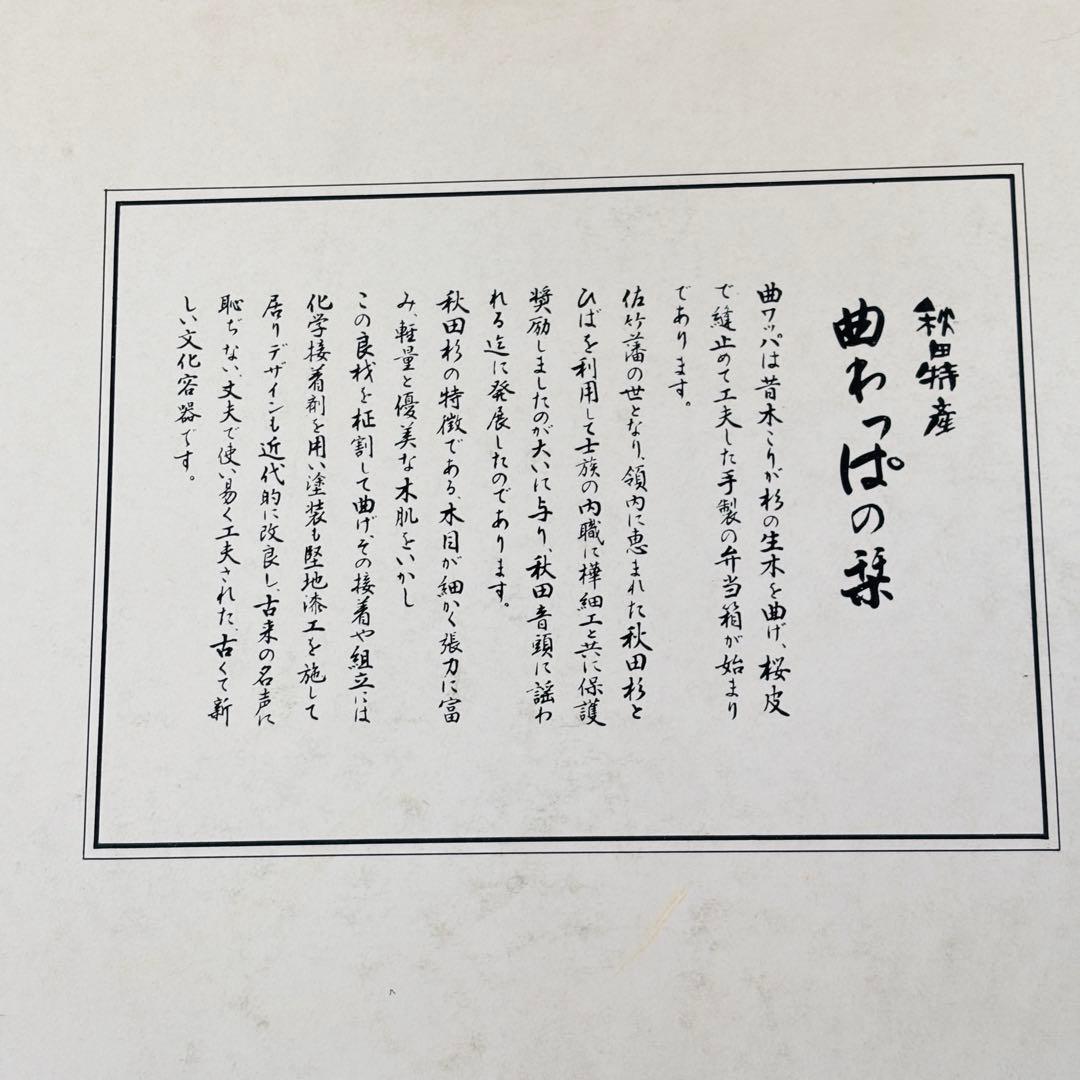 秋田特産
曲わっぱの栞
曲ワッパは昔木こりが杉の生木を曲げ、桜皮
で縫止めて工夫した手製の弁当箱が始まり
であります。
佐竹藩の世となり、領内に恵まれた秋田杉と
ひばを利用して士族の内職に樺細工と共に保護
奨励しましたのが大いに与り、秋田音頭に謡わ
れる迄に発展したのであります。
秋田杉の特徴である、木目が細かく張力に富
み、軽量と優美な木肌をいかし
この良材を柾割して曲げ、その接着や組立には
化学接着剤を用い塗装も堅地漆工を施して
居りデザインも近代的に改良し、古来の名声に
恥ぢない、丈夫で使い易く工夫された、古くて新
しい文化容器です。